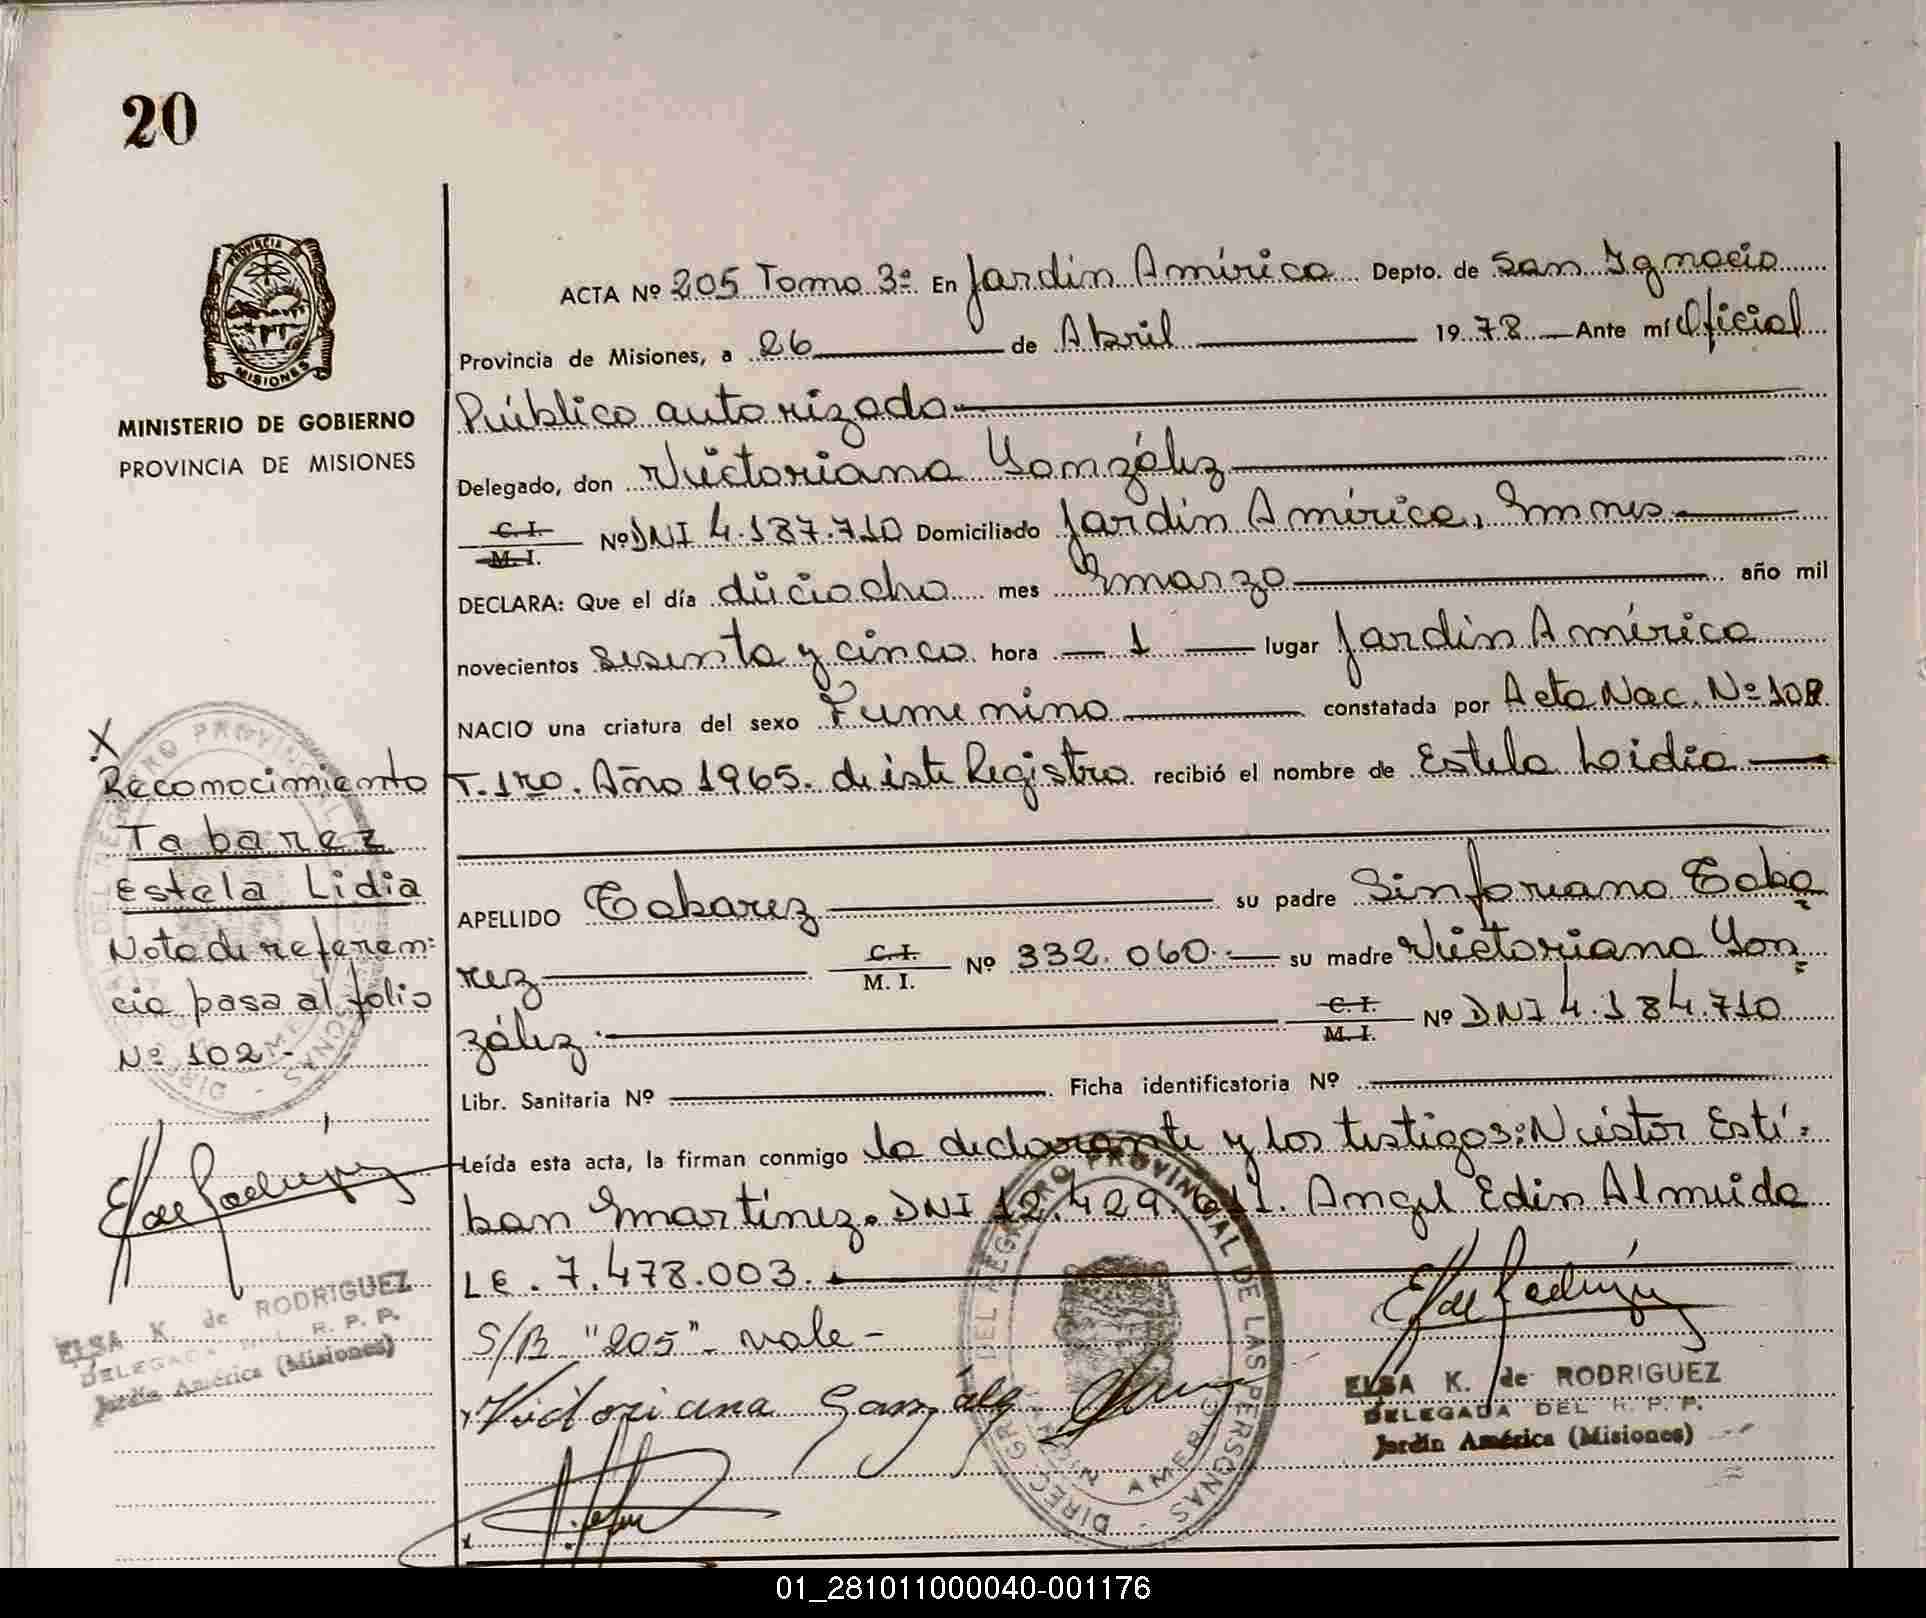 20
PROVINCIA
MISIONES
MINISTERIO DE GOBIERNO
PROVINCIA DE MISIONES
ACTA Nº 205 Tomo 3º En Jardín América Depto. de San Ignacio
Provincia de Misiones, a 26 de Abril 1978 Ante mí Oficial
Público autorizado
Delegado, don Victoriana González
C. I.
M. I.
Nº DNI 4.187.710 Domiciliado Jardín América, Mnes
DECLARA: Que el día dieciocho mes Marzo año mil
novecientos sesenta y cinco hora 1 lugar Jardín América
NACIO una criatura del sexo Femenino constatada por Acta Nac. Nº 102
T. 1ro. Año 1965. de este Registro recibió el nombre de Estela Lidia
APELLIDO Tabarez su padre Sinforiano Taba
rez C. I. M. I. Nº 332.060.- su madre Victoriana Gon
zález.- C. I. M. I. Nº DNI 4.184.710
Libr. Sanitaria Nº Ficha identificatoria Nº
Leída esta acta, la firman conmigo la declarante y los testigos: Néstor Este-
ban Martínez. DNI 12.429.611. Angel Edin Almeida
LE. 7.478.003.
S/B "205" vale-
Victoriana González
ELSA K. de RODRIGUEZ
DELEGADA DEL R. P. P.
Jardín América (Misiones)
X
Reconocimiento
Tabarez
Estela Lidia
Nota de referen-
cia pasa al folio
Nº 102.-
ELSA K. de RODRIGUEZ
DELEGADA DEL R. P. P.
Jardín América (Misiones)
01_281011000040-001176